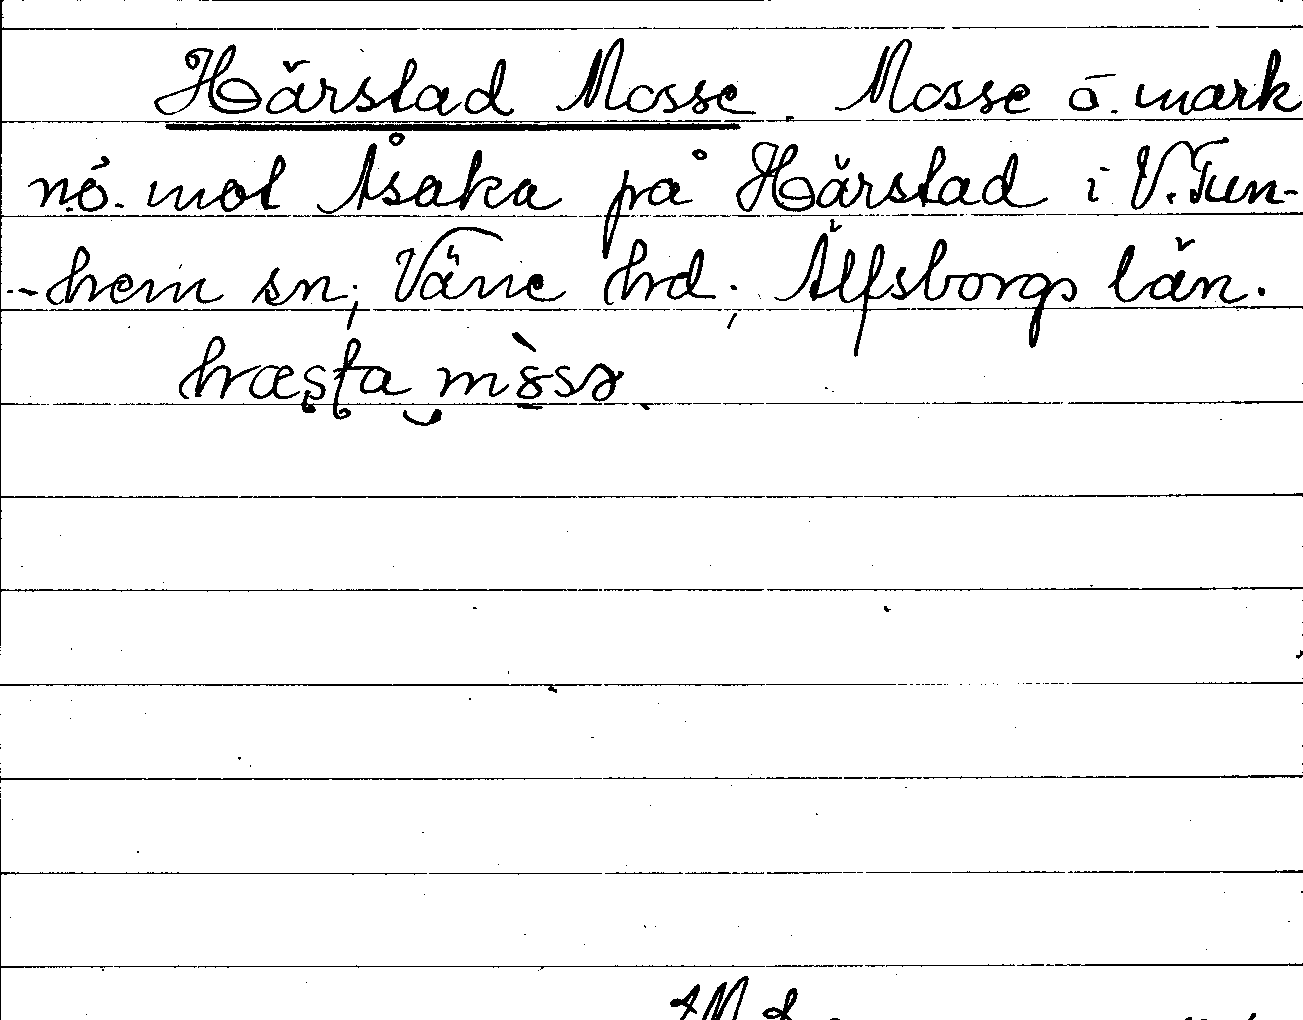 Härstad Mosse. Mosse ö. mark
nö. mot Åsaka på Härstad i V. Tun-
-hem sn; Väne hrd; Älfsborgs län.